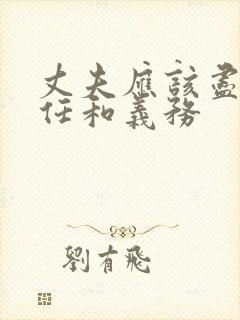 丈夫应該盡
任和義務
劉有飛